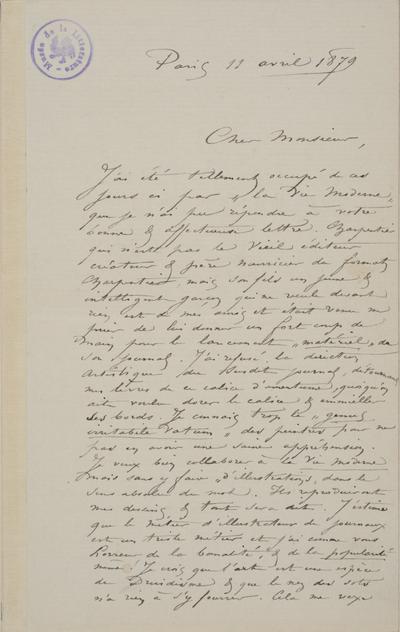 Musée de la Littérature
Paris 11 avril 1879
Cher Monsieur,
J'ai été tellement occupé de ces
jours ci par "la Vie Moderne"
que je n'ai pu répondre à votre
bonne & affectueuse lettre. Charpentier
qui n'est pas le vieil éditeur
créateur & père nourricier du format
Charpentier, mais son fils un jeune &
intelligent garçon qui ne recule devant
rien, est de mes amis et était venu me
prier de lui donner un fort coup de
main pour le lancement "matériel" de
son journal. J'ai refusé la direction
artistique du susdit journal, détournant
mes lèvres de ce calice d'amertume, quoiqu'on
ait voulu dorer le calice & emmieller
ses bords. Je connais trop le "genus
irritabile vatum" des peintres pour ne
pas en avoir une saine appréhension.
Je veux bien collaborer à la Vie moderne
mais sans y faire "d'illustrations" dans le
sens absolu du mot. Ils reproduiront
mes dessins, & tout sera dit. J'estime
que le métier d'illustrateur de journaux
est un triste métier et j'ai comme vous
horreur de la banalité, & de la popularité
même! Je crois que l'art est une espèce
de Druidisme & que le nez des sots
n'a rien à s'y fourrer. Cela ne veux